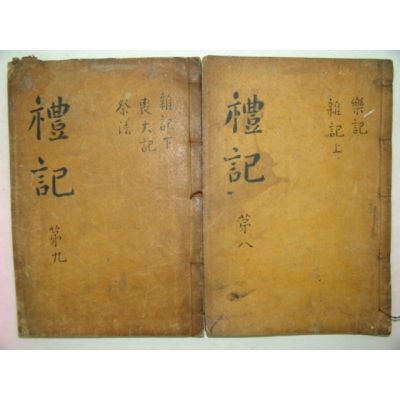 禮記
第九
雜記下
喪大記
祭法
禮記
第八
樂記
雜記上